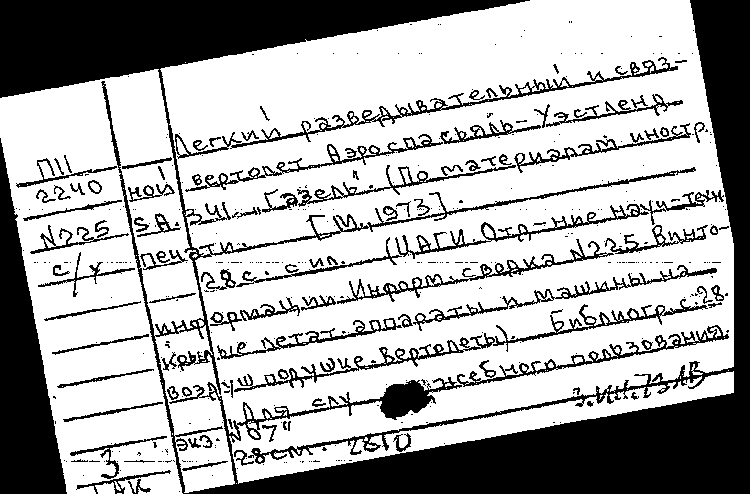 Легкий разведывательный и связ-
ПII
2240
ной вертолет Аэроспасьяль-Уэстленд
N225
SA. 341 „Газель". (По материалам иностр.
с/х
печати. [М., 1973].
28с. с ил. (ЦАГИ. Отд-ние науч-техн
информации. Информ. сводка N225. Винто-
крылые летат. аппараты и машины на
воздуш подушке. Вертолеты). Библиогр. с. 28.
"Для служебного пользования.
экз. N67"
3.ИН.73ЛВ
28см. 2810
3
ГАК